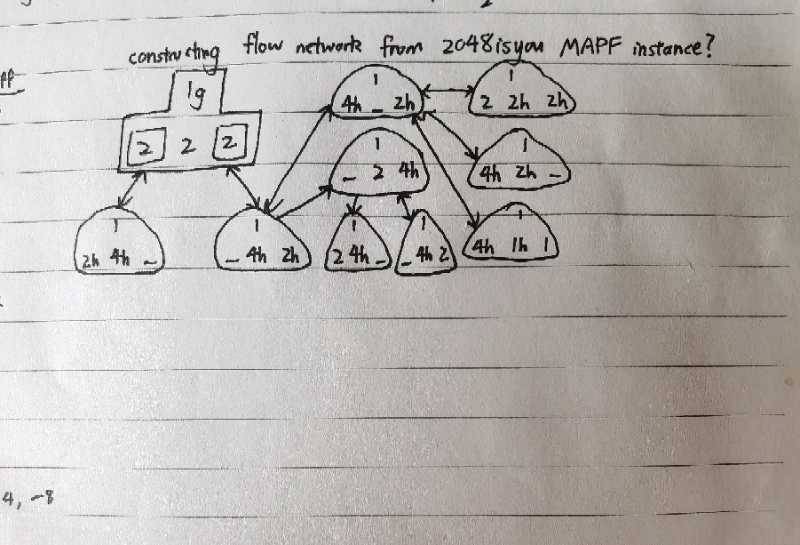 constructing flow network from 2048isyou MAPF instance?
ff
1g
2 2 2
1
4h _ 2h
1
2 2h 2h
1
_ 2 4h
1
4h 2h _
1
2h 4h _
1
_ 4h 2h
1
2 4h _
1
_ 4h 2
1
4h 1h 1
4, -8